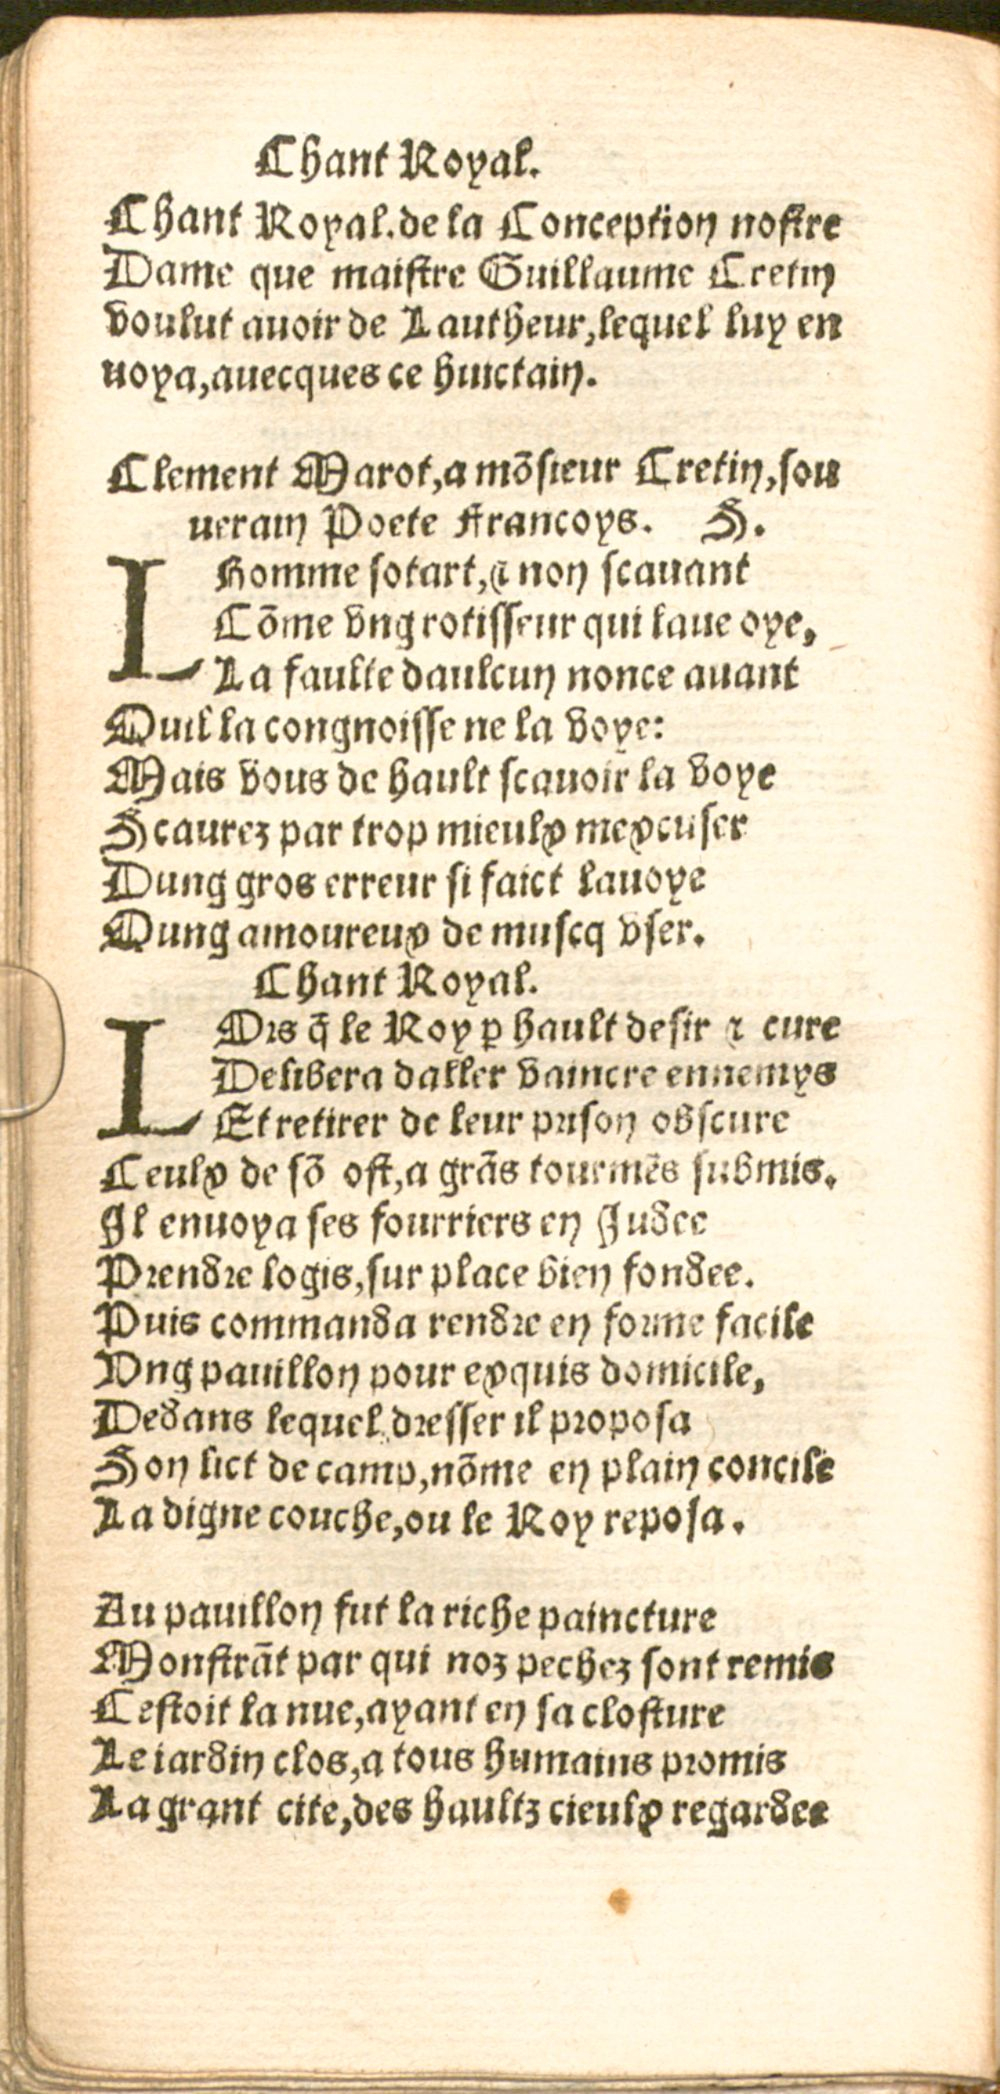 Chant Royal.
Chant Royal.de la Conception nostre
Dame que maistre Guillaume Cretin
voulut auoir de Lautheur,lequel luy en
uoya,auecques ce huictain.
Clement Marot,a mõsieur Cretin,sou
uerain Poete Francoys. S.
LHomme sotart,⁊ non scauant
Cõme vng rotisseur qui laue oye,
La faulte daulcun nonce auant
Quil la congnoisse ne la voye:
Mais vous de hault scauoir la voye
Scaurez par trop mieulx mexcuser
Dung gros erreur si faict lauoye
Qung amoureux de muscq vser.
Chant Royal.
LOrs q̃ le Roy ꝑ hault desir ⁊ cure
Delibera daller vaincre ennemys
Et retirer de leur prison obscure
Ceulx de sõ ost,a grãs tourmẽs submis.
Il enuoya ses fourriers en Judee
Prendre logis,sur place bien fondee.
Puis commanda rendre en forme facile
Vng pauillon pour exquis domicile,
Dedans lequel dresser il proposa
Son lict de camp,nõme en plain concile
La digne couche,ou le Roy reposa.
Au pauillon fut la riche paincture
Monstrãt par qui noz pechez sont remis
Cestoit la nue,ayant en sa closture
Le iardin clos,a tous humains promis
La grant cite,des haultz cieulx regardee